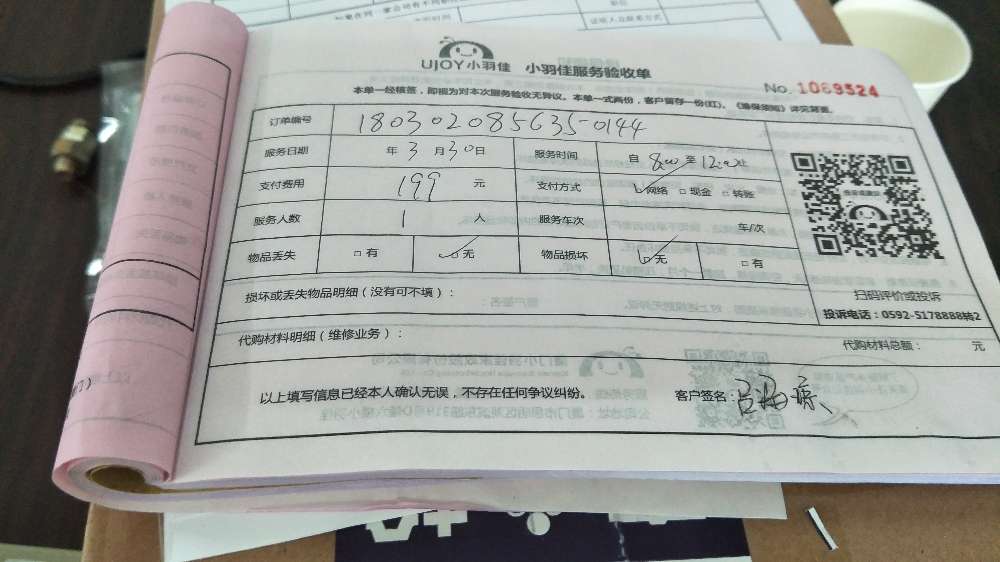 UJOY小羽佳 小羽佳服务验收单
No. 1069524
本单一经核签，即视为对本次服务验收无异议。本单一式两份，客户留存一份(红)。《维保须知》详见背面。
订单编号 180302085635-0144
服务日期 年 3 月 30 日 服务时间 自 8:00 至 12:00 止
支付费用 199 元 支付方式 ☑网络 □现金 □转账
服务人数 1 人 服务车次 车/次
物品丢失 □有 ☑无 物品损坏 ☑无 □有
扫码评价或投诉
损坏或丢失物品明细（没有可不填）：
投诉电话：0592-5178888转2
代购材料明细（维修业务）：
代购材料总额： 元
以上填写信息已经本人确认无误，不存在任何争议纠纷。 客户签名：